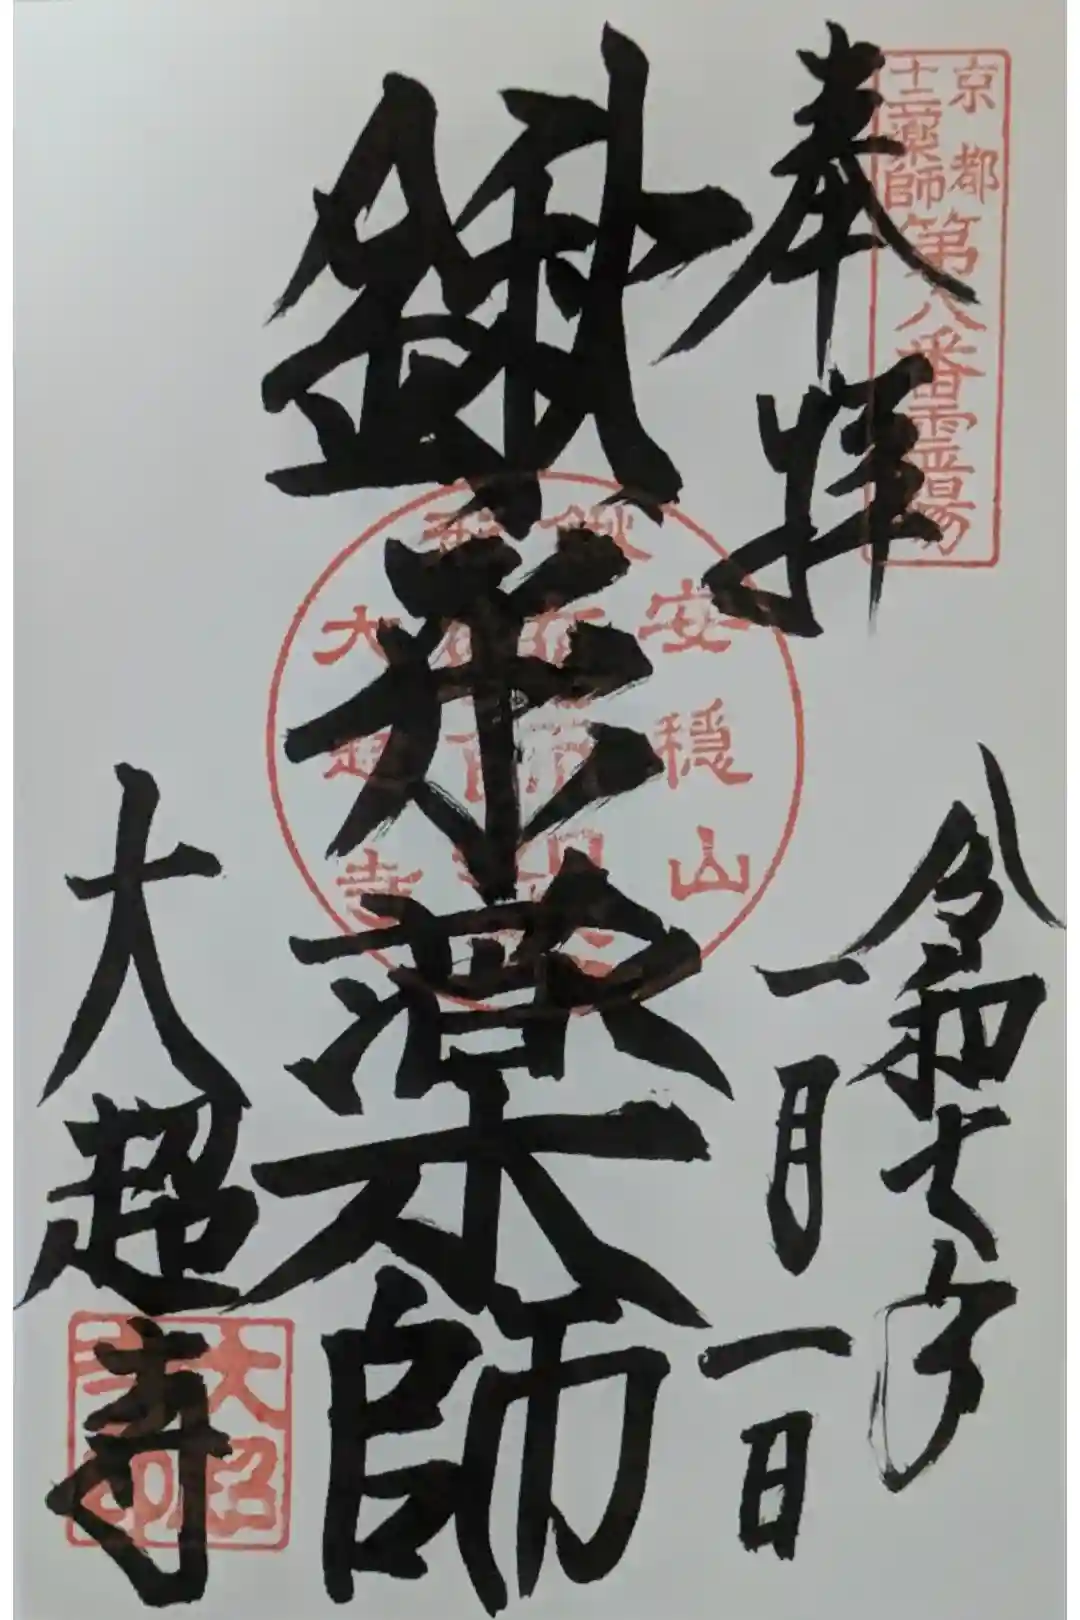 京都
十二薬師
第八番霊場
奉拝
令和七年
一月一日
鍬形薬師
大超寺
安穏山
大超寺